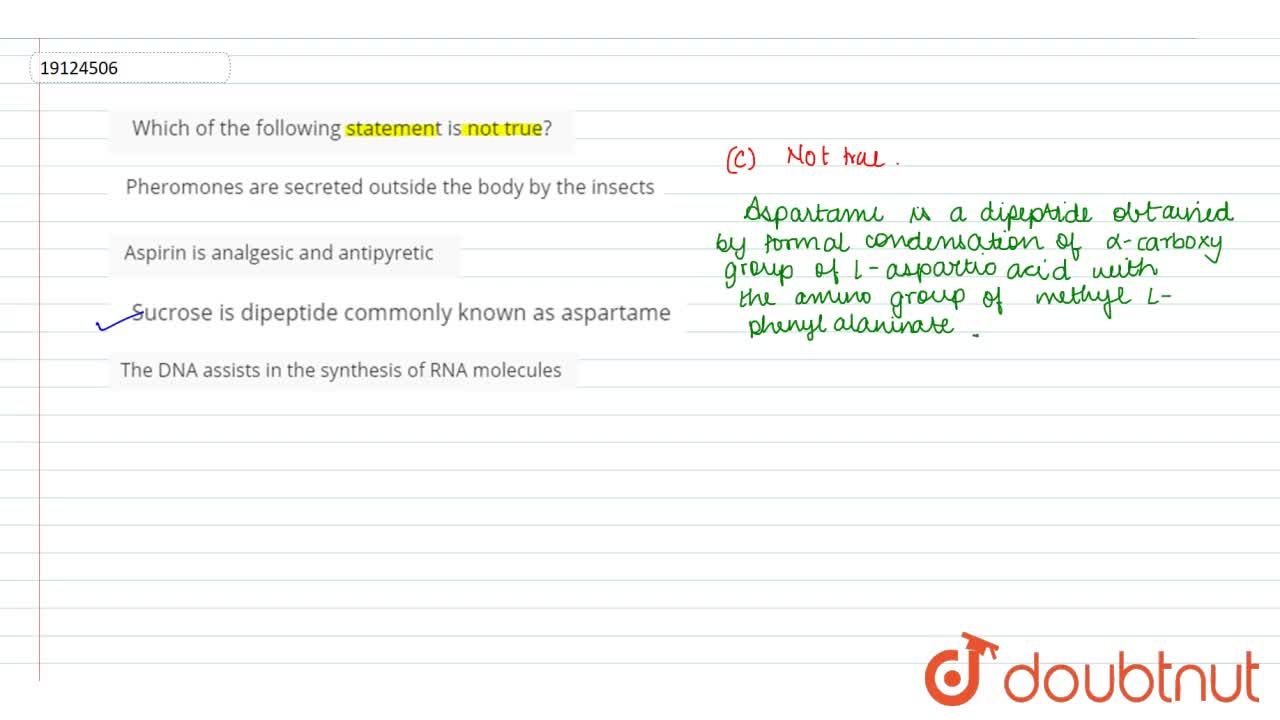 19124506
Which of the following statement is not true?
Pheromones are secreted outside the body by the insects
Aspirin is analgesic and antipyretic
Sucrose is dipeptide commonly known as aspartame
The DNA assists in the synthesis of RNA molecules
(C) Not true.
Aspartame is a dipeptide obtained
by formal condensation of α-carboxy
group of L-aspartic acid with
the amino group of methyl L-
phenyl alaninate.
doubtnut